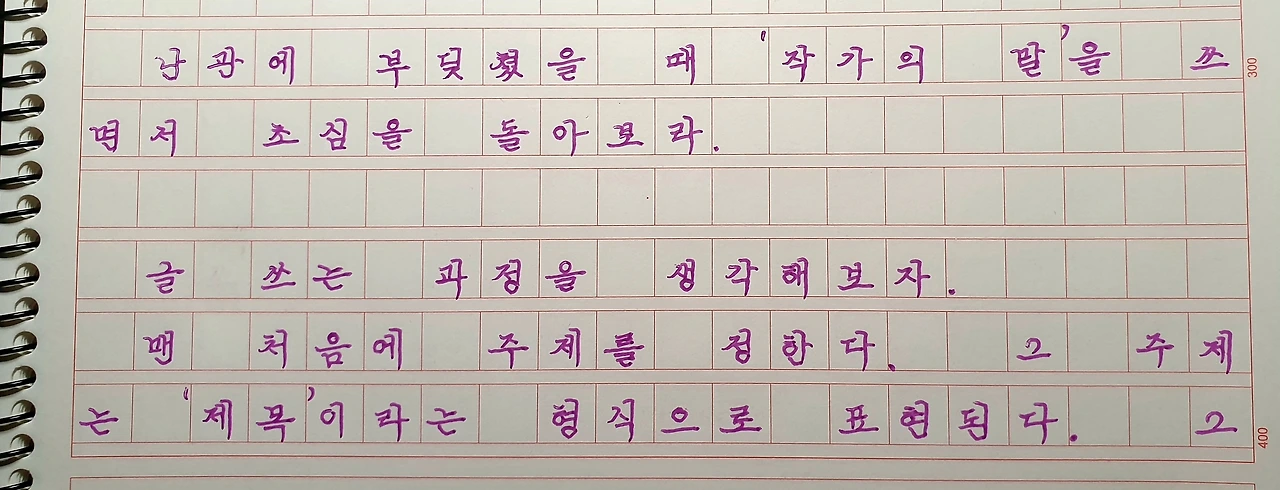 난관에 부딪쳤을 때 '작가의 말'을 쓰
300
면서 초심을 돌아보라.
글 쓰는 과정을 생각해보자.
맨 처음에 주제를 정한다. 그 주제
는 '제목'이라는 형식으로 표현된다. 그
400